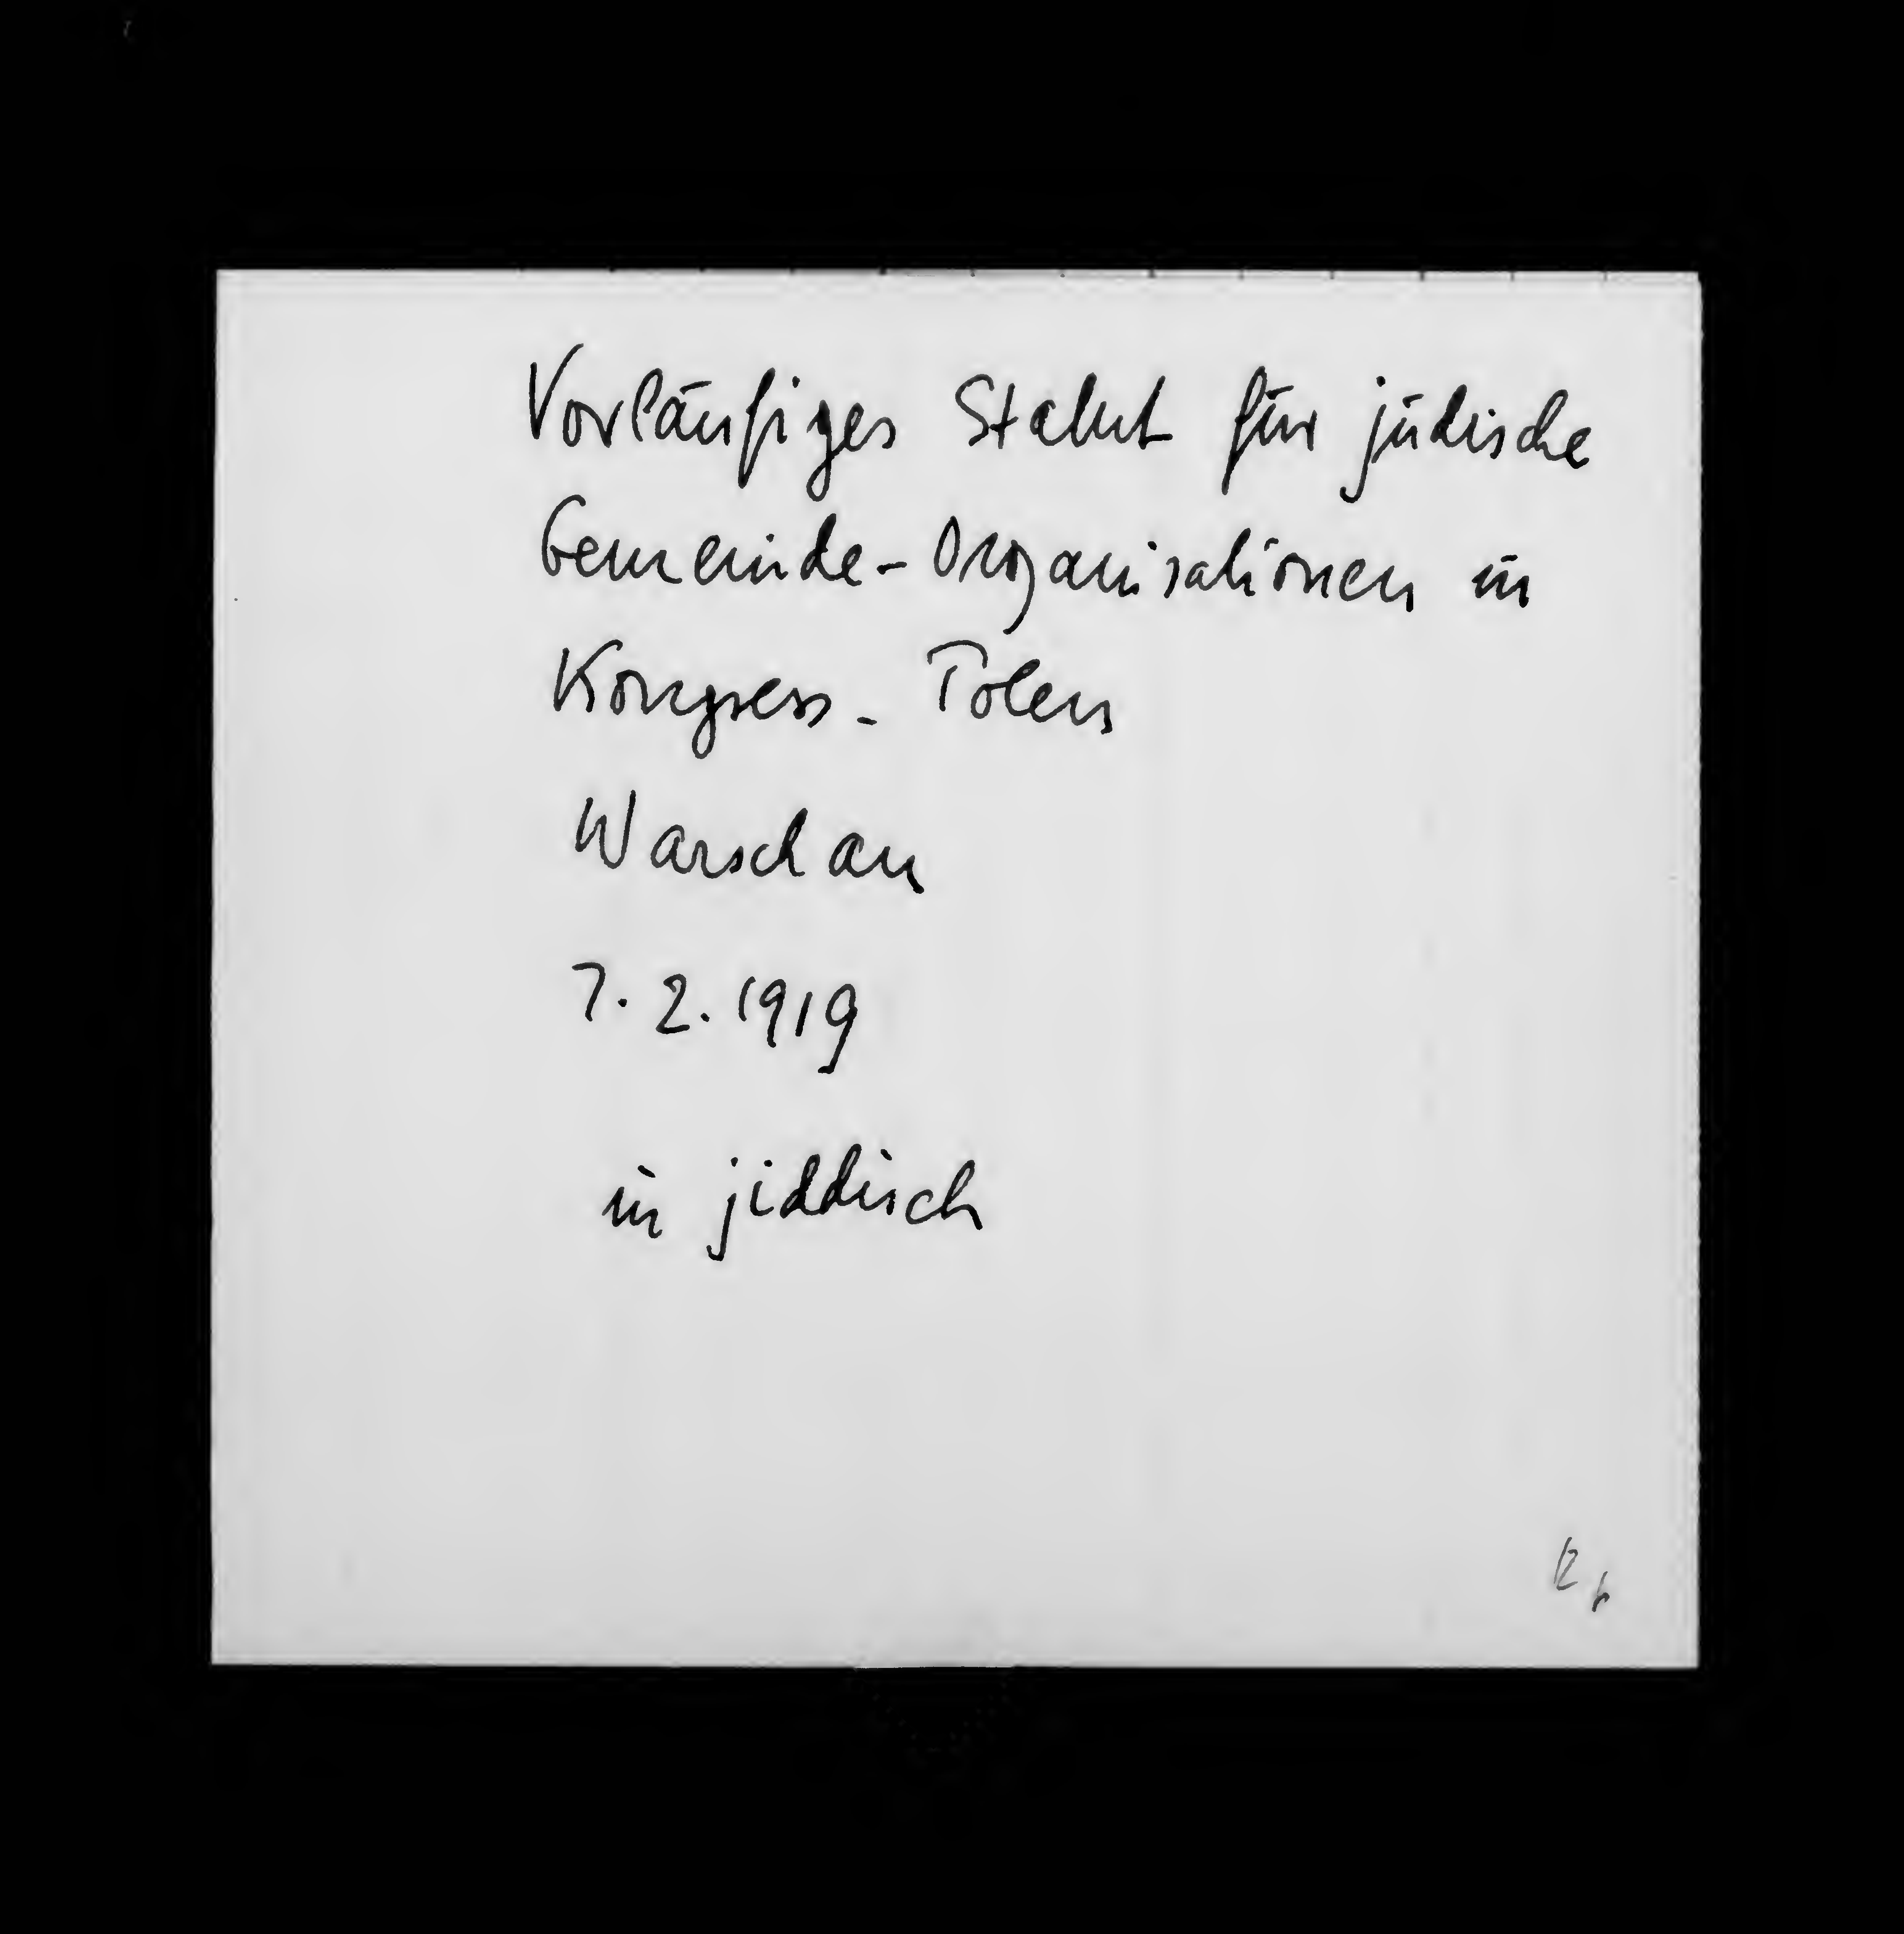 Vorläufiges Statut für jüdische
Gemeinde-Organisationen in
Kongress-Polen
Warschau
7.2.1919
in jiddisch